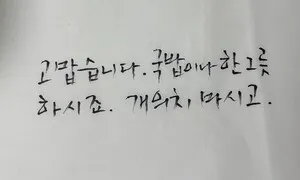 고맙습니다. 국밥이나 한그릇
하시죠. 개의치 마시고.